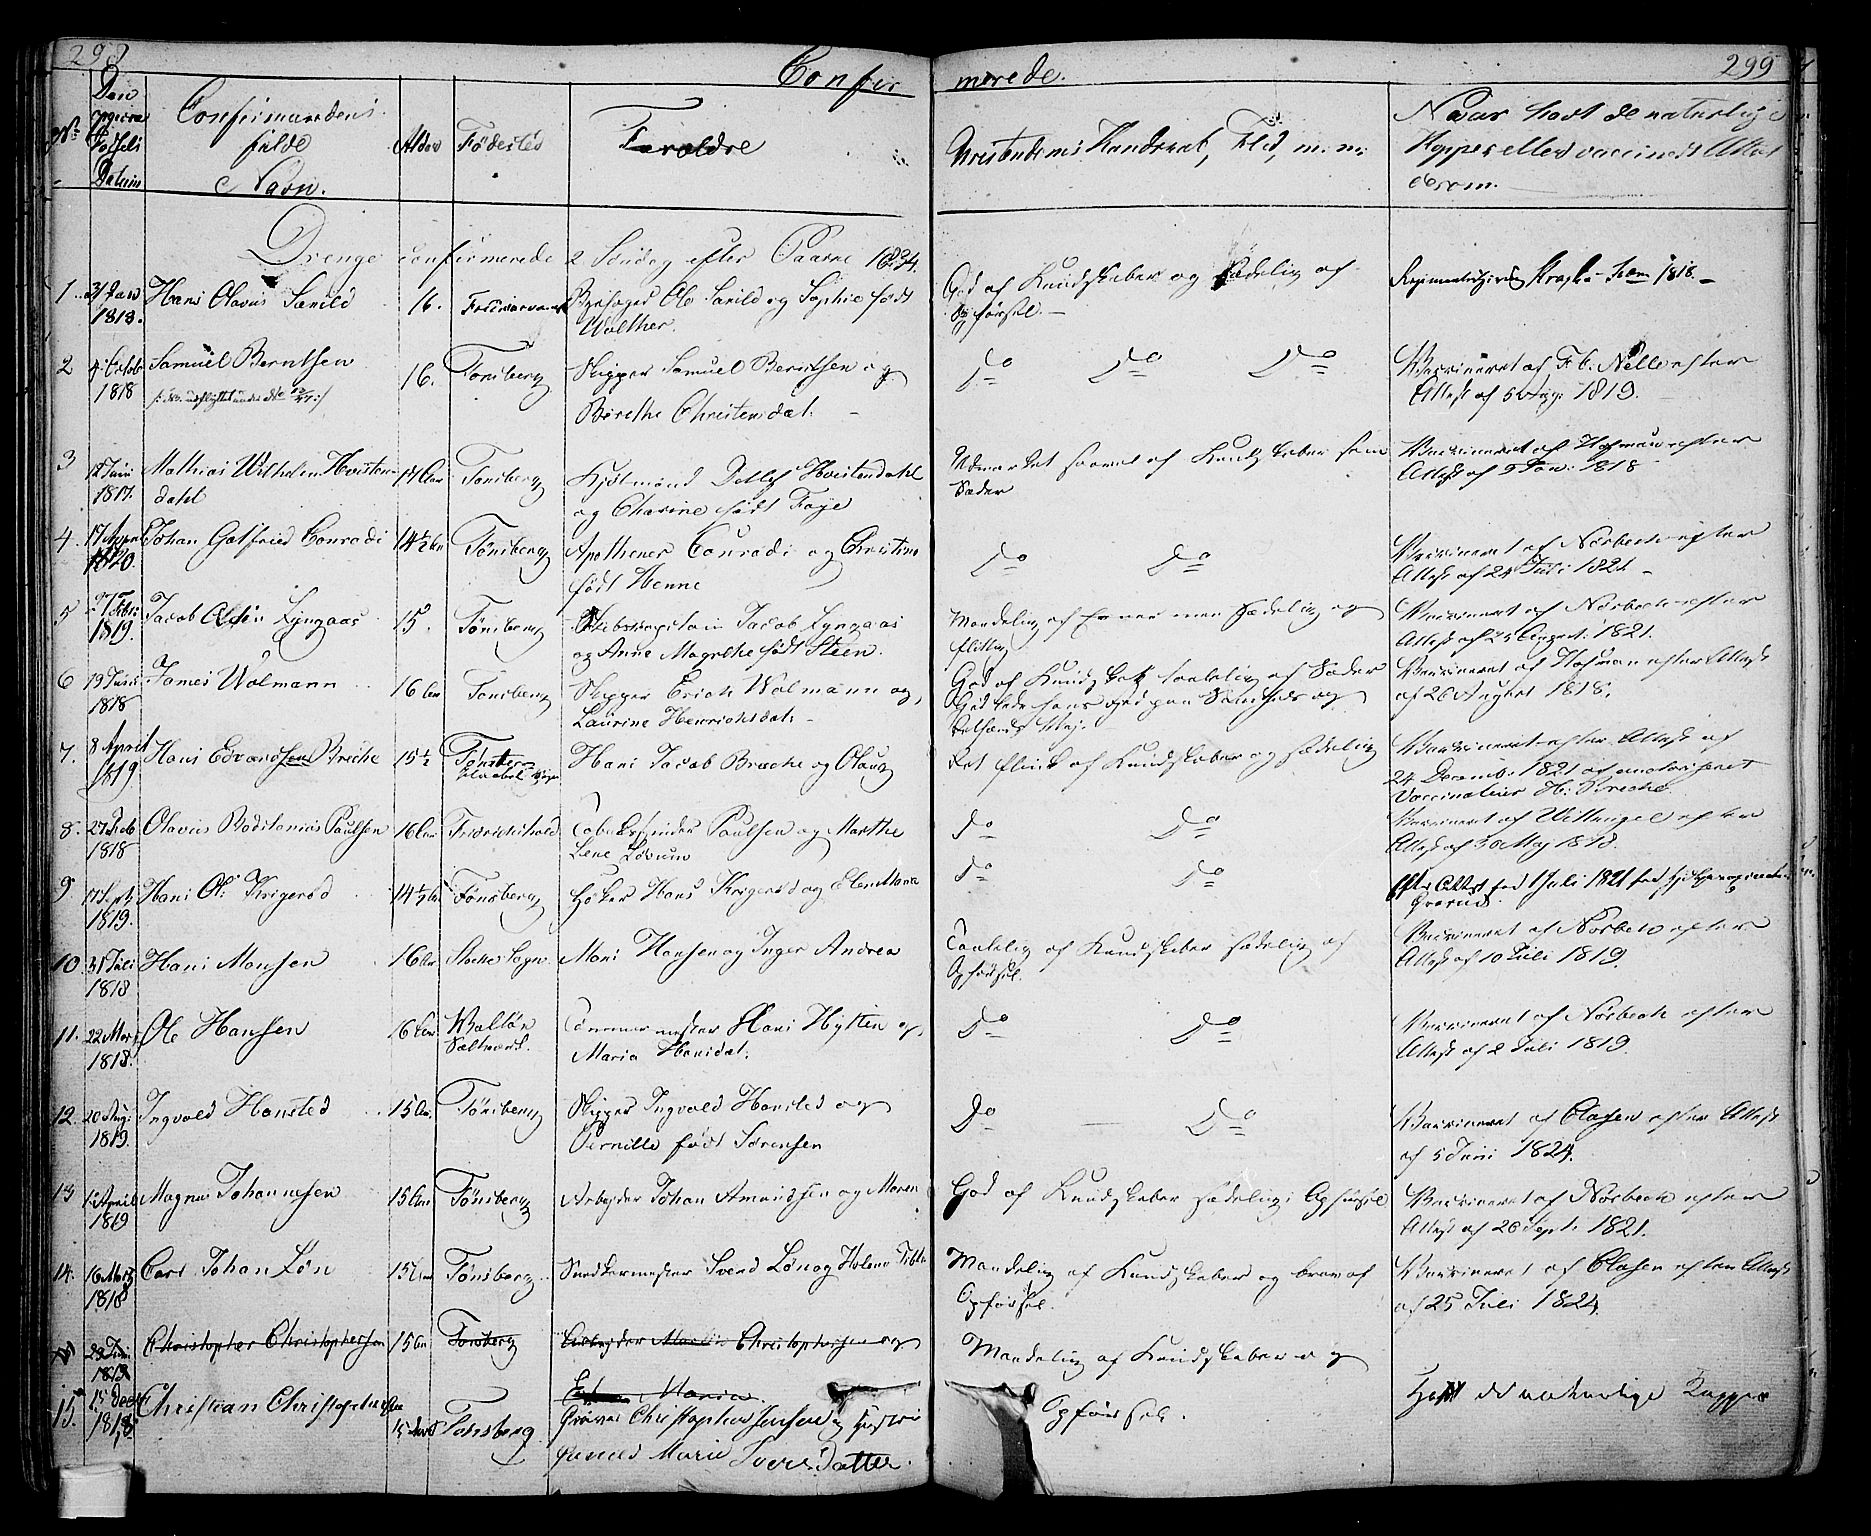 298
Confir merede.
299
No
Den
opgivne
Fødsels
Datum
Confirmandens
fulde
Navn.
Alder
Fødested
Forældre
Christendoms Kundskab, Flid, m. m:
Naar havt de naturlige
Kopper eller vaccineret Attest
derom.
Drenge confirmerede 2 Søndag efter Paaske 1834.
1. 31 Jan 1818. Hans Olavus Sanild 16. Fridriksværn
Ole Sanild og Sophie født
Walther.
God af Kundskaber og Sædelig af
Opførsel.
1818
2 4 Octob 1818 Samuel Berntsen 16. Tønsberg
Skipper Samuel Berntsen og
Berethe Christensdat.
Do Do Do
Vaccineret af F. C. Nelle efter
Attest af 5 Aug. 1819.
3 12 Juni 1817. Mathias Wilhelm Hvistendahl 17 Aar Tønsberg
Detlef Hvistendahl
og Chatrine født Foye
Udmærket af Kundskaber som
Sæder
Vaccineret af Hofman efter
Attest af 9 Jan: 1818
4. 17 April 1820. Johan Gotfried Conradi 14½ Aar Tønsberg
Apotheker Conradi og Christine
født Henne
Do Do
Vaccineret af Norbech efter
Attest af 24 Juli 1821.
5 27 Feb: 1819. Jacob Lyngaas 15. Tønsberg
Skibskapitain Jacob Lyngaas
og Anne Magrethe født Steen.
Maadelig af Evner men Sædelig og
flittig
Vaccineret af Norbech efter
Attest af 25 August 1821.
6 19 Juni 1818 James Wolmann 16 Aar Tønsberg
Skipper Erich Wolmann og
Laurine Henrichsdat.
God af Kundskab sædelig af Sæder
Vaccineret af Hofman efter Attest
af 26 August 1818.
7. 8 April 1819 Hans Edvardsen Breche 15½ Tønsberg
Hans Jacob Breche og Olaug
Ret flink af Kundskaber og sædelig
Vaccineret efter Attest af
24 Decemb. 1821 af autoriseret
Vaccinateur H: Breche
8. 27 Feb 1818 Olavus Paulsen 16 Aar Fridrichshald
Tobakspinder Paulsen og Marthe
Lene Lövum
Do Do
Vaccineret af Withugel efter
Attest af 30 Maj 1818.
9 17 Sept 1819. Hans Ol: Krigeröd 14½ Aar Tønsberg
Høker Hans Krigeröd og Elen Maria
Do Do
efter Attest fra 1 Juli 1821
10. 31 Juli 1818 Hans Monsen 16 Aar Stocke Sogn
Mons Hansen og Inger Andrea
Taalelig af Kundskaber sædelig af
Opførsel.
Vaccineret af Norbech efter
Attest af 10 Juli 1819.
11. 22 Marz 1818. Ole Hansen 16 Aar Walløe
Saltværk.
Tømmermester Hans Hytten og
Maria Hansdat.
Do Do
Vaccineret af Norbech efter
Attest af 2 Juli 1819.
12. 20 Aug: 1819. Ingvald Hansted 15 Aar. Tønsberg
Skipper Ingvald Hansted og
Pernille født Sørensen
Do Do
Vaccineret af Clasen efter Attest
af 5 Juni 1824.
13 12 April 1819 Magnus Johannesen 15 Aar Tønsberg
Arbejder Johan Amundsen og Maren
God af Kundskaber sædelig i Opførsel
Vaccineret af Norbech efter
Attest af 26 Sept. 1821.
14. 16 Marz 1818 Carl Johan Løn 15 Aar Tønsberg
Snedkermester Svend Løn og Helene
Maadelig af Kundskaber og brav af
Opførsel.
Vaccineret af Clasen efter Attest
af 25 Juli 1824.
Christopher Christophersen 15 Aar Tønsberg
Arbejder Martin Christophersen og
Maria
Maadelig af Kundskaber og
Opførsel.
15. 15 Dec 1818 Christian Christophersen 15 Aar Tønsberg
Christopher Jensen og Hustru
Marie Iversdatter.
Havt de naturlige Kopper